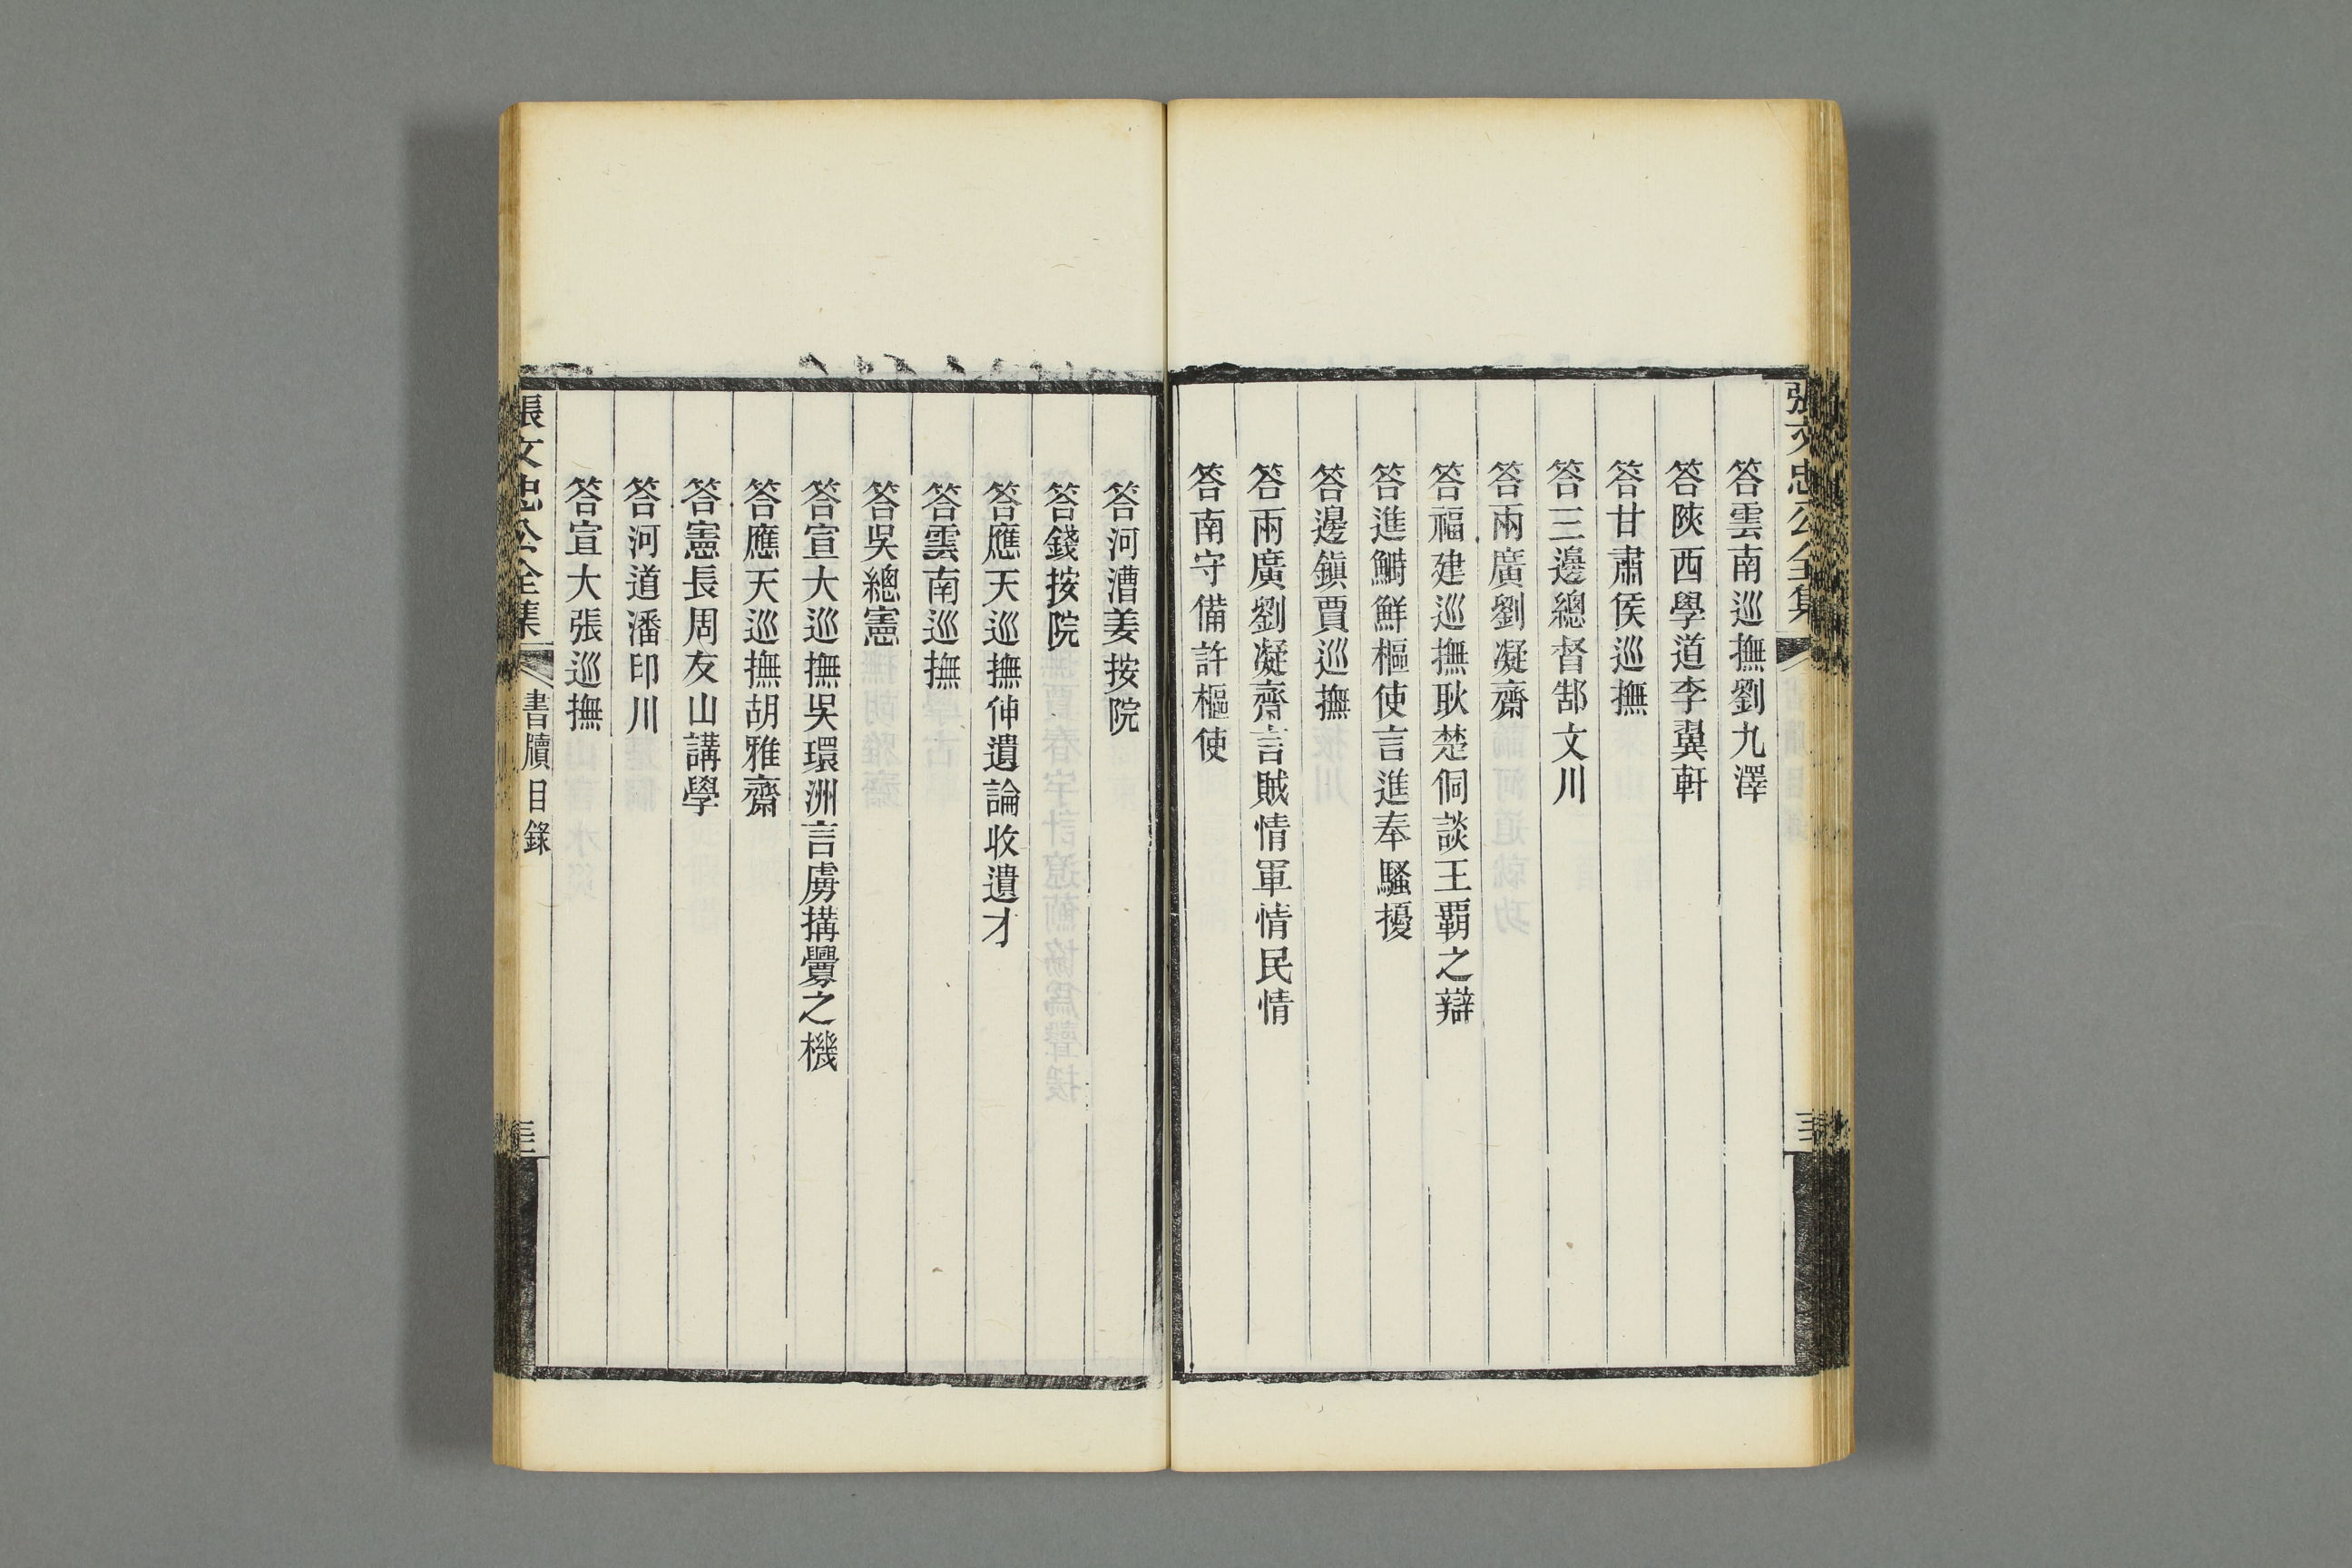 張文忠公全集
答雲南巡撫劉九澤
答陝西學道李翼軒
答甘肅侯巡撫
答三邊總督郜文川
答兩廣劉凝齋
答福建巡撫耿楚侗談王覇之辯
答進鰣鮮樞使言進奉騷擾
答邊鎭賈巡撫
答兩廣劉凝齋言賊情軍情民情
答南守備許樞使
答河漕姜按院
答錢按院
答應天巡撫伸遺論收遺才
答雲南巡撫
答吳總憲
答宣大巡撫吳環洲言虜搆釁之機
答應天巡撫胡雅齋
答憲長周友山講學
答河道潘印川
答宣大張巡撫
張文忠公全集 書牘目錄